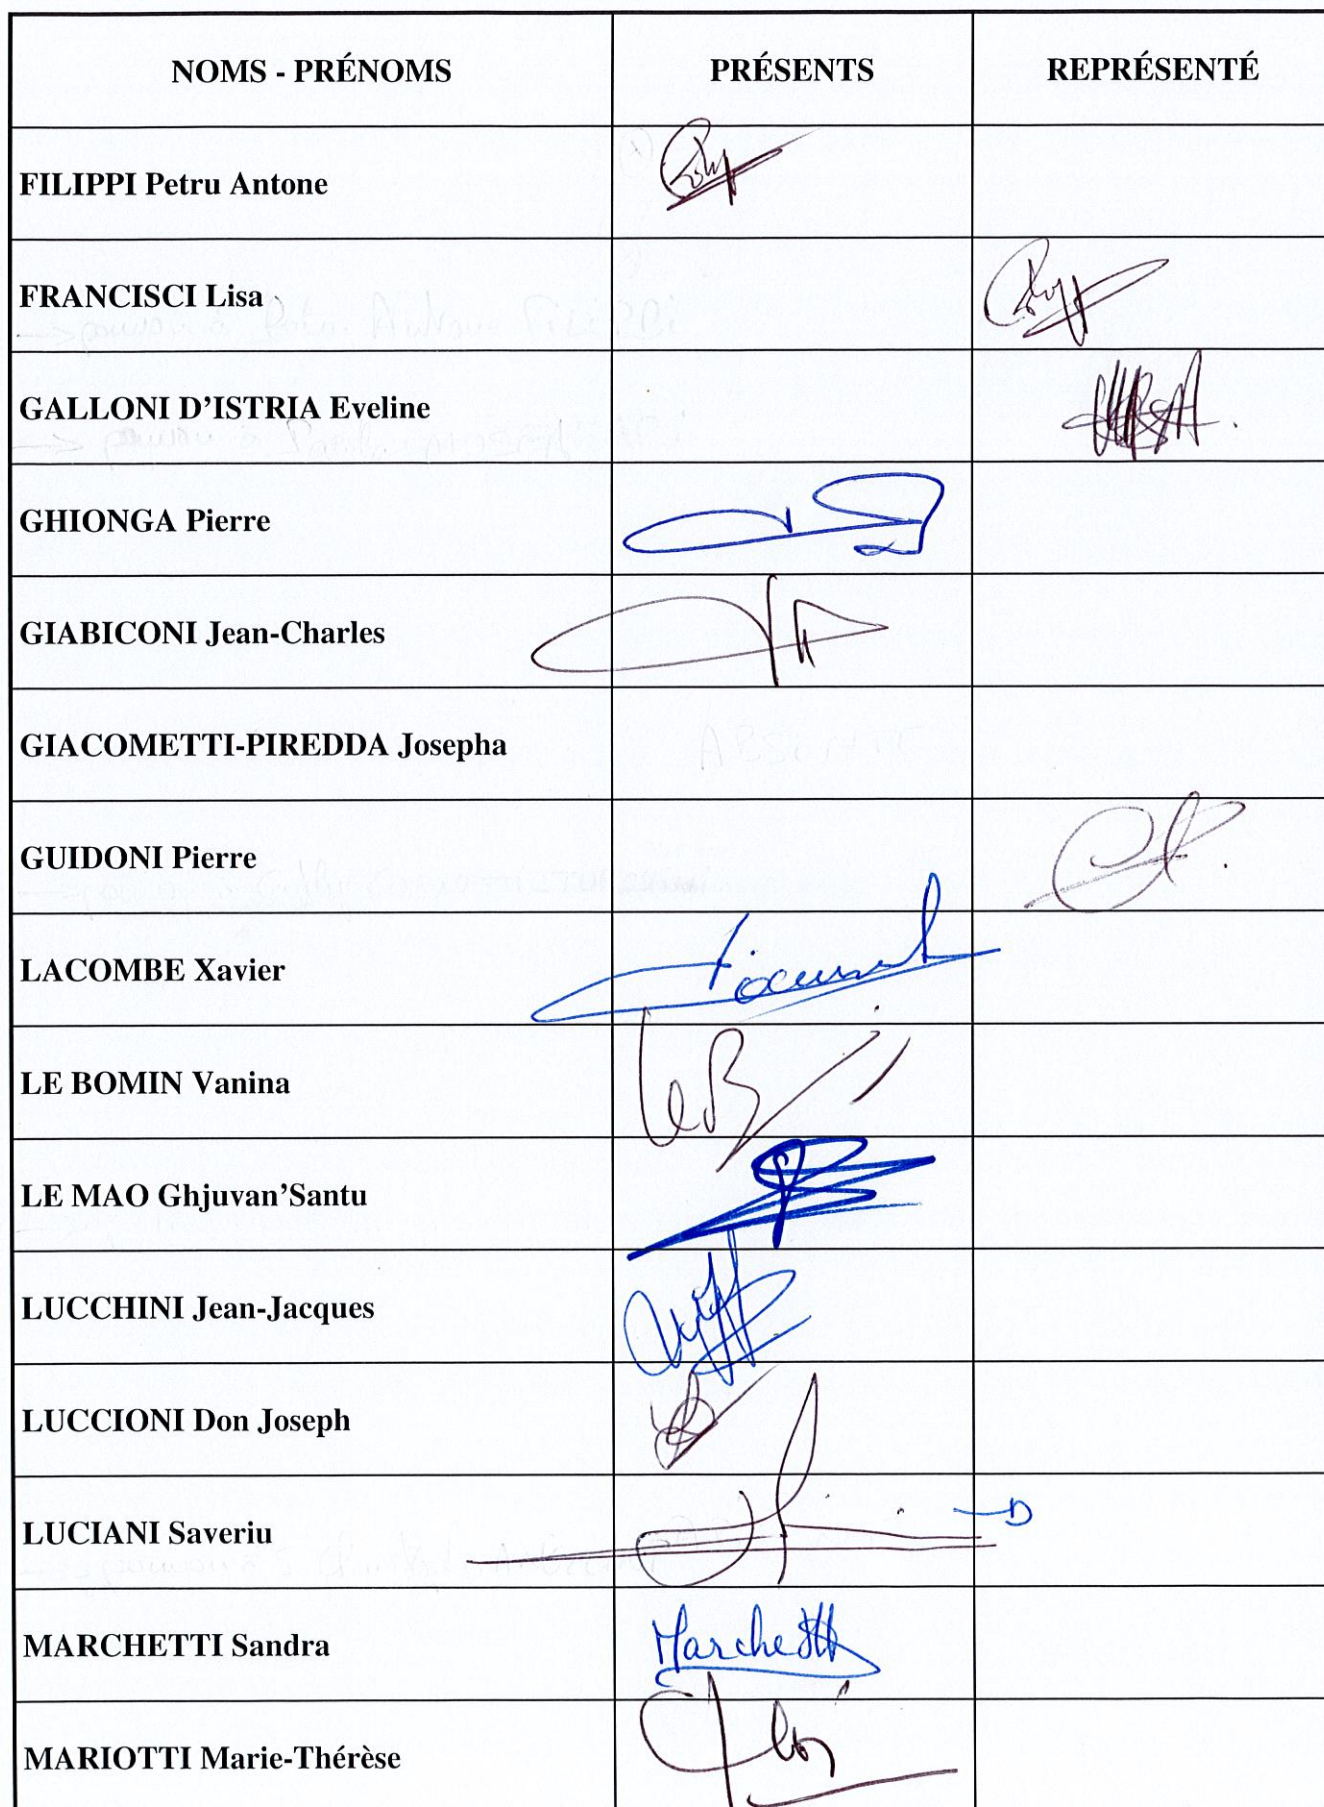 NOMS - PRÉNOMS PRÉSENTS REPRÉSENTÉ
FILIPPI Petru Antone
FRANCISCI Lisa
GALLONI D'ISTRIA Eveline
GHIONGA Pierre
GIABICONI Jean-Charles
GIACOMETTI-PIREDDA Josepha
GUIDONI Pierre
LACOMBE Xavier
LE BOMIN Vanina
LE MAO Ghjuvan'Santu
LUCCHINI Jean-Jacques
LUCCIONI Don Joseph
LUCIANI Saveriu
MARCHETTI Sandra Marchetti
MARIOTTI Marie-Thérèse